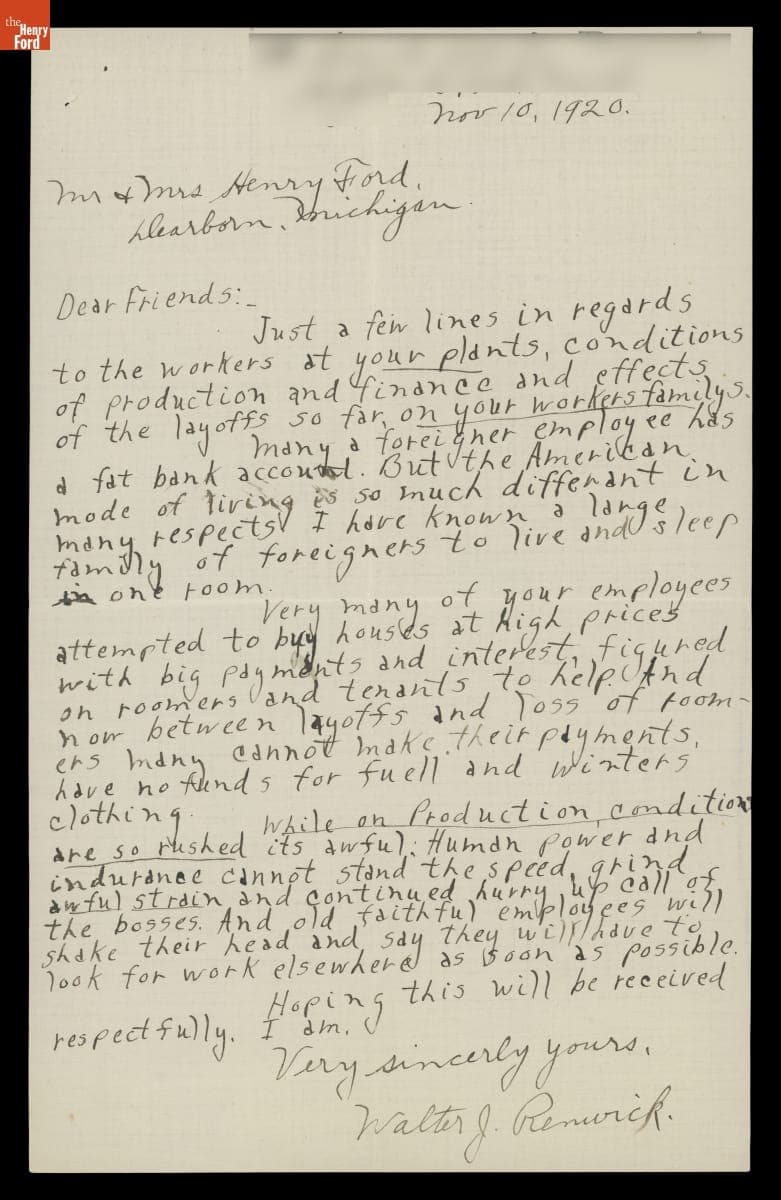 the
Henry
Ford
Nov 10, 1920.
Mr & Mrs Henry Ford.
Dearborn. Michigan.
Dear Friends:-
Just a few lines in regards
to the workers at your plants, conditions
of production and finance and effects
of the layoffs so far, on your workers familys.
Many a foreigner employee has
a fat bank account. But the American
mode of living is so much differant in
many respects. I have known a large
family of foreigners to live and sleep
in one room.
Very many of your employees
attempted to buy houses at high prices
with big payments and interest, figured
on roomers and tenants to help. And
now between layoffs and loss of room-
ers many cannot make their payments,
have no funds for fuell and winters
clothing.
While on Production, condition
are so rushed its awful: Human power and
indurance cannot stand the speed, grind
awful strain and continued hurry up call of
the bosses. And old faithful employees will
shake their head and say they will have to
look for work elsewhere as soon as possible.
Hoping this will be received
respectfully. I am.
Very sincerly yours.
Walter J. Renwick.